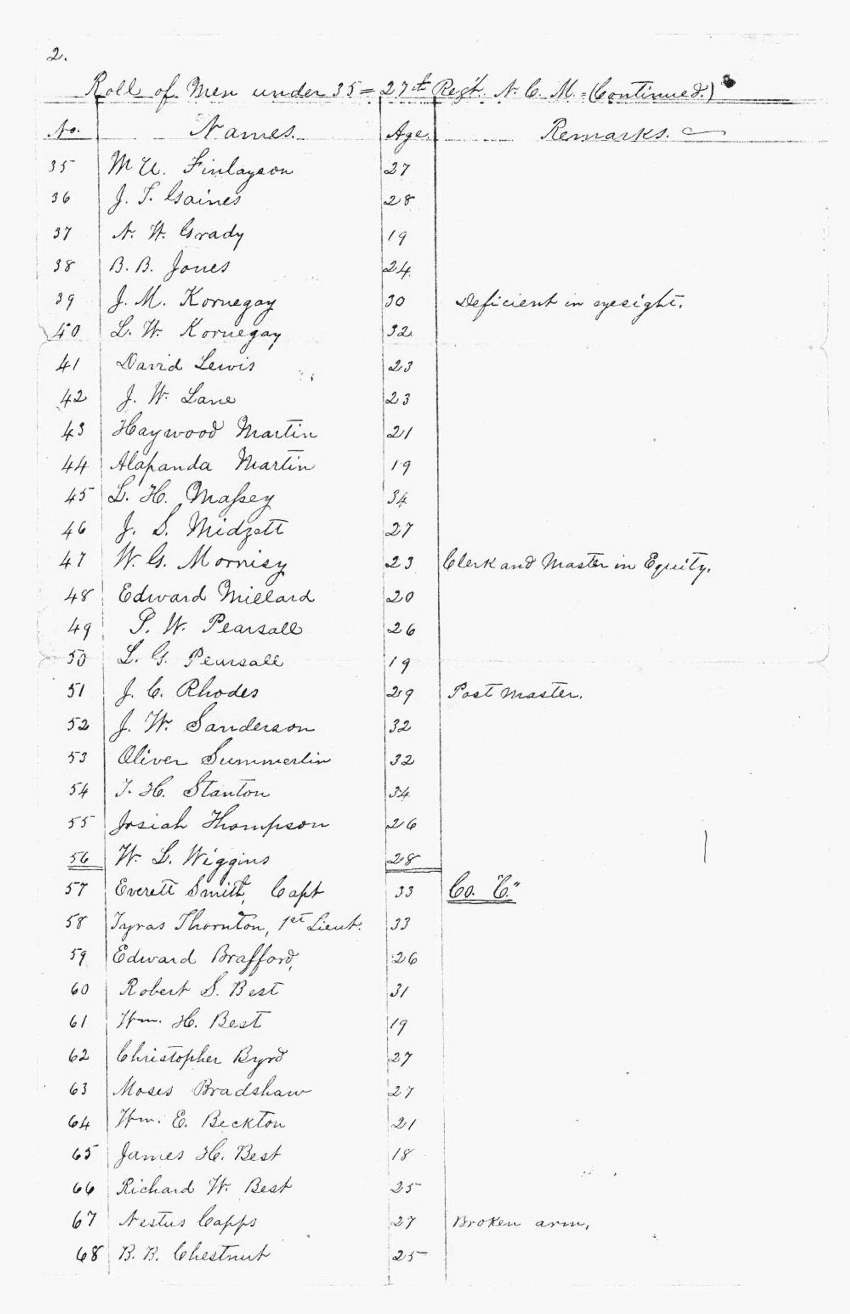 2.
Roll of Men under 35 = 27th Regt. N. C. M. = (Continued.)
No. Names. Age. Remarks.
35 M U. Finlayson 27
36 J. T. Gaines 28
37 N. W. Grady 19
38 B. B. Jones 24
39 J. M. Kornegay 30 Deficient in eyesight.
40 L. W. Kornegay 32
41 David Lewis 23
42 J. W. Lane 23
43 Haywood Martin 21
44 Alapanda Martin 19
45 L. H. Massey 34
46 J. S. Midzett 27
47 W. G. Mornisy 23 Clerk and Master in Equity.
48 Edward Millard 20
49 P. W. Pearsall 26
50 L. G. Pearsall 19
51 J. C. Rhodes 29 Post Master.
52 J. W. Sanderson 32
53 Oliver Summerlin 32
54 T. H. Stanton 34
55 Josiah Thompson 26
56 W. L. Wiggins 28
57 Everett Smith, Capt 33 Co. "C."
58 Tyras Thornton, 1st Lieut. 33
59 Edward Brafford, 26
60 Robert S. Best 31
61 Wm. H. Best 19
62 Christopher Byrd 27
63 Moses Bradshaw 27
64 Wm. E. Beckton 21
65 James H. Best 18
66 Richard W. Best 25
67 Nestus Capps 27 Broken arm,
68 B. B. Chestnut 25